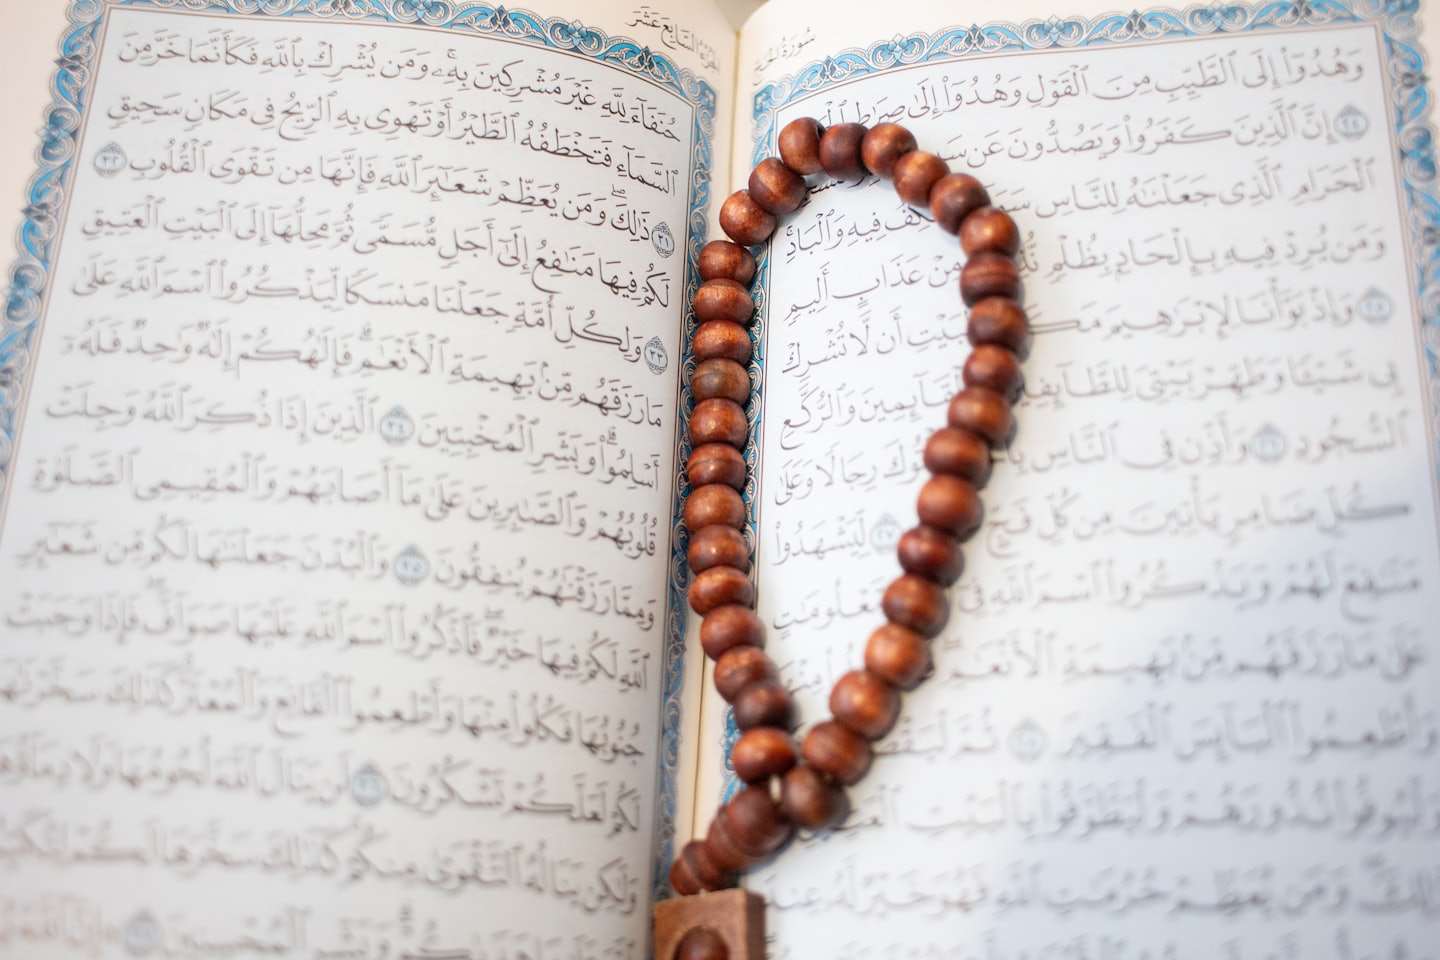 سُورَةُ الحَجِّ
وَهُدُوٓاْ إِلَى ٱلطَّيِّبِ مِنَ ٱلۡقَوۡلِ وَهُدُوٓاْ إِلَىٰ صِرَٰطِ
٢٤ إِنَّ ٱلَّذِينَ كَفَرُواْ وَيَصُدُّونَ عَن
ٱلۡحَرَامِ ٱلَّذِي جَعَلۡنَٰهُ لِلنَّاسِ فِيهِ وَٱلۡبَادِۚ
وَمَن يُرِدۡ فِيهِ بِإِلۡحَادِۭ بِظُلۡمٖ مِنۡ عَذَابٍ أَلِيمٖ
٢٥ وَإِذۡ بَوَّأۡنَا لِإِبۡرَٰهِيمَ أَن لَّا تُشۡرِكۡ
بِي شَيۡـٔٗا وَطَهِّرۡ بَيۡتِيَ لِلطَّآئِفِينَ وَٱلرُّكَّعِ
ٱلسُّجُودِ ٢٦ وَأَذِّن فِي ٱلنَّاسِ رِجَالٗا وَعَلَىٰ
كُلِّ ضَامِرٖ يَأۡتِينَ مِن كُلِّ فَجٍّ ٢٧ لِّيَشۡهَدُواْ
مَنَٰفِعَ لَهُمۡ وَيَذۡكُرُواْ ٱسۡمَ ٱللَّهِ فِيٓ مَّعۡلُومَٰتٍ
عَلَىٰ مَا رَزَقَهُم مِّنۢ بَهِيمَةِ ٱلۡأَنۡعَٰمِۖ
وَأَطۡعِمُواْ ٱلۡبَآئِسَ ٱلۡفَقِيرَ ٢٨ ثُمَّ
وَلۡيُوفُواْ نُذُورَهُمۡ وَلۡيَطَّوَّفُواْ بِٱلۡبَيۡتِ
ذَٰلِكَۖ وَمَن يُعَظِّمۡ حُرُمَٰتِ ٱللَّهِ فَهُوَ خَيۡرٞ لَّهُۥ عِندَ
الجُزْءُ السَّابِعَ عَشَرَ
حُنَفَآءَ لِلَّهِ غَيۡرَ مُشۡرِكِينَ بِهِۦۚ وَمَن يُشۡرِكۡ بِٱللَّهِ فَكَأَنَّمَا خَرَّ مِنَ
ٱلسَّمَآءِ فَتَخۡطَفُهُ ٱلطَّيۡرُ أَوۡ تَهۡوِي بِهِ ٱلرِّيحُ فِي مَكَانٖ سَحِيقٖ
٣١ ذَٰلِكَۖ وَمَن يُعَظِّمۡ شَعَٰٓئِرَ ٱللَّهِ فَإِنَّهَا مِن تَقۡوَى ٱلۡقُلُوبِ ٣٢
لَكُمۡ فِيهَا مَنَٰفِعُ إِلَىٰٓ أَجَلٖ مُّسَمّٗى ثُمَّ مَحِلُّهَآ إِلَى ٱلۡبَيۡتِ ٱلۡعَتِيقِ
٣٣ وَلِكُلِّ أُمَّةٖ جَعَلۡنَا مَنسَكٗا لِّيَذۡكُرُواْ ٱسۡمَ ٱللَّهِ عَلَىٰ
مَا رَزَقَهُم مِّنۢ بَهِيمَةِ ٱلۡأَنۡعَٰمِۗ فَإِلَٰهُكُمۡ إِلَٰهٞ وَٰحِدٞ فَلَهُۥٓ
أَسۡلِمُواْۗ وَبَشِّرِ ٱلۡمُخۡبِتِينَ ٣٤ ٱلَّذِينَ إِذَا ذُكِرَ ٱللَّهُ وَجِلَتۡ
قُلُوبُهُمۡ وَٱلصَّٰبِرِينَ عَلَىٰ مَآ أَصَابَهُمۡ وَٱلۡمُقِيمِي ٱلصَّلَوٰةِ
وَمِمَّا رَزَقۡنَٰهُمۡ يُنفِقُونَ ٣٥ وَٱلۡبُدۡنَ جَعَلۡنَٰهَا لَكُم مِّن شَعَٰٓئِرِ
ٱللَّهِ لَكُمۡ فِيهَا خَيۡرٞۖ فَٱذۡكُرُواْ ٱسۡمَ ٱللَّهِ عَلَيۡهَا صَوَآفَّۖ فَإِذَا وَجَبَتۡ
جُنُوبُهَا فَكُلُواْ مِنۡهَا وَأَطۡعِمُواْ ٱلۡقَانِعَ وَٱلۡمُعۡتَرَّۚ كَذَٰلِكَ سَخَّرۡنَٰهَا
لَكُمۡ لَعَلَّكُمۡ تَشۡكُرُونَ ٣٦ لَن يَنَالَ ٱللَّهَ لُحُومُهَا وَلَا دِمَآؤُهَا
وَلَٰكِن يَنَالُهُ ٱلتَّقۡوَىٰ مِنكُمۡۚ كَذَٰلِكَ سَخَّرَهَا لَكُمۡ
وَبَشِّرِ ٱلۡمُحۡسِنِينَ ٣٧